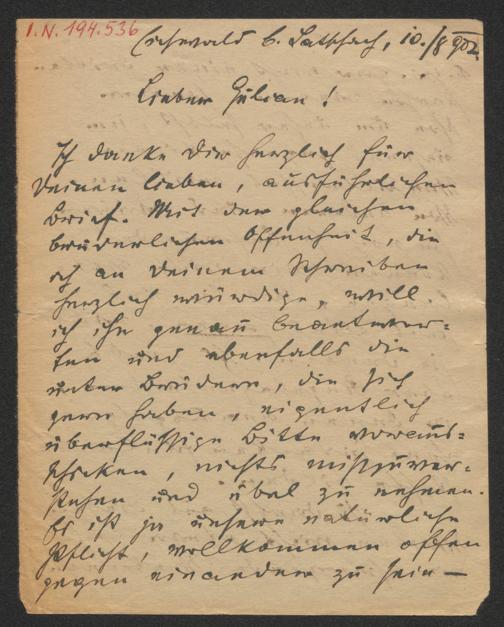 I.N. 194.536
b. 10./8 902
Lieber Gülian!
Ich danke Dir herzlich für
Deinen lieben, ausführlichen
Brief. Mit der gleichen
brüderlichen Offenheit, die
ich an Deinem Schreiben
herzlich würdige, will
ich ihn genau beantwor-
ten und ebenfalls die
unter Brüdern, die sich
gern haben, eigentlich
überflüssige Bitte voraus-
schicken, nichts mißzuver-
stehen und übel zu nehmen.
Es ist ja unsere natürliche
Pflicht, vollkommen offen
gegen einander zu sein —